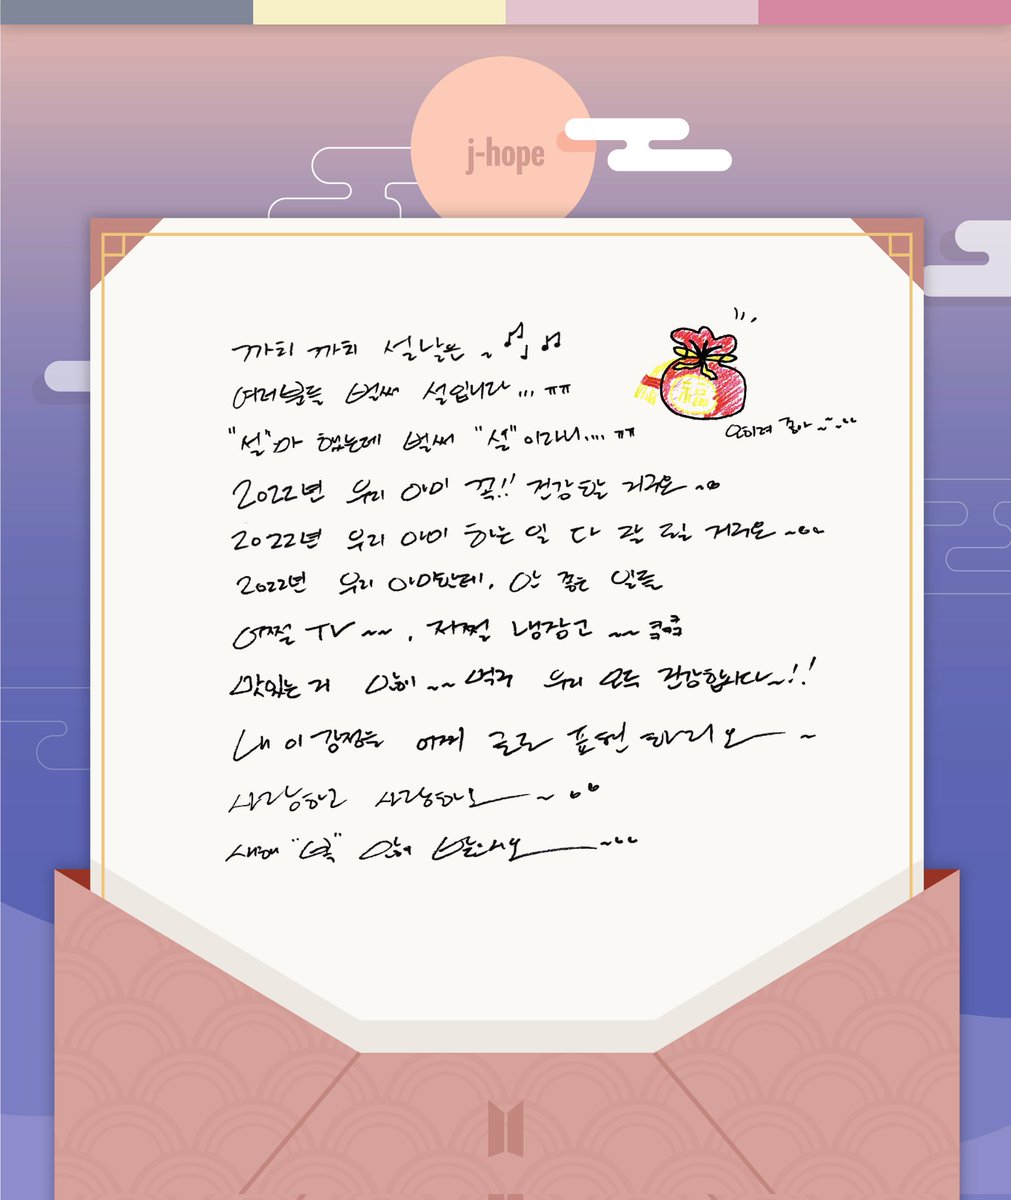 j-hope
까치 까치 설날은 ~ ♪♩♫
여러분들 벌써 설입니다... ㅠㅠ
"설"마 했는데 벌써 "설"이라니.... ㅠㅠ
福
오히려 좋아~~^^
2022년 우리 아미 꼭!! 건강할 거구요~
2022년 우리 아미 하는 일 다 잘 될 거구요~^^
2022년 우리 아미한테, 안 좋은 일들
어쩔 TV~~, 저쩔 냉장고 ~~ 쿸쿸
맛있는 거 많이~~ 먹구 우리 모두 건강합시다~!!
내 이 감정을 어찌 글로 표현하리오 ~
사랑하고 사랑하오 ~
새해 "복" 많이 받으시오 ~^^